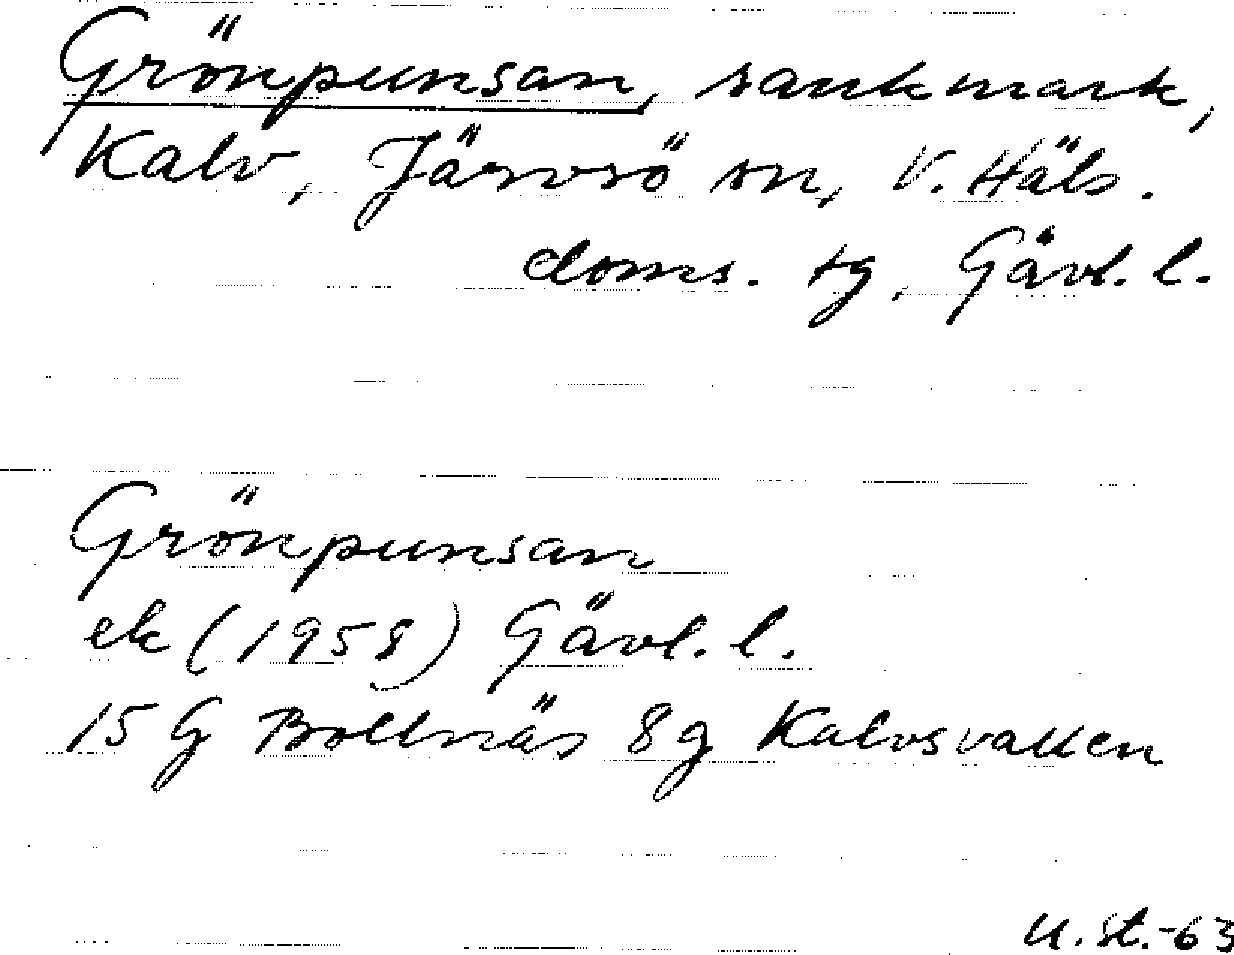 Grönpunsan, sankmark,
Kalv, Järvsö sn, V. Häls.
doms. tg, Gävl. l.
Grönpunsan
ek (1958) Gävl. l.
15 G Bollnäs 8g Kalvsvallen
U. St.-63